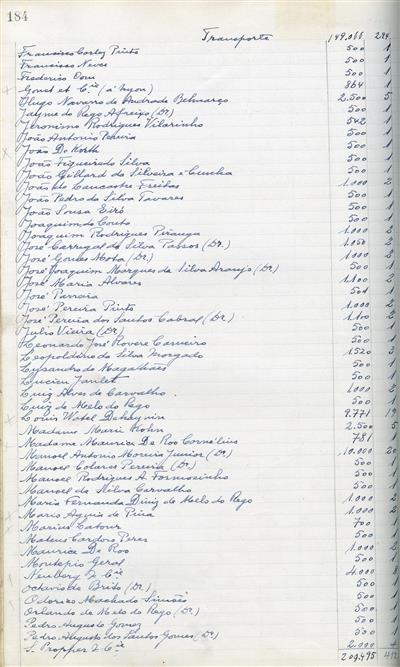 184
Transporte 149.066 294
Francisco Cortez Pinto 500 1
Francisco Neves 500 1
Frederico Oom 500 1
Gonet et Cie (à Lyon) 864 1
Hugo Navarro de Andrade Belmarço 2.500 5
Jayme do Rego Afreixo (Dr.) 500 1
Jeronimo Rodrigues Vilarinho 542 1
João Antonio Pereira 500 1
João De Korth 500 1
João Figueiredo Silva 500 1
João Gillard da Silveira e Cunha 500 1
João de Lancastre Freitas 1.000 2
João Pedro da Silva Tavares 500 1
João Sousa Eiró 500 1
Joaquim do Couto 500 1
Joaquim Rodrigues Piranga 1.000 2
José Carregal da Silva Passos (Dr.) 1.050 2
José Gomes Mota (Dr.) 1.000 2
José Joaquim Marques da Silva Araujo (Dr.) 500 1
José Maria Alvares 1.100 2
José Parreira 500 1
José Pereira Pinto 1.000 2
José Pereira dos Santos Cabral (Dr.) 1.100 2
Julio Vieira (Dr.) 500 1
Leonardo José Rovere Carneiro 500 1
Leopoldino da Silva Morgado 1520 3
Lysandro de Magalhães 500 1
Lucien 500 1
Luiz Alves de Carvalho 1.000 2
Luiz de Melo do Rego 500 1
Louis Wotel Dehaynin 9.771 19
Madame Marie Kohn 2.500 5
Madame Maurice De Roo Cornélius 781 1
Manoel Antonio Moreira Junior (Dr.) 10.000 20
Manoel Colares Pereira (Dr.) 500 1
Manoel Rodrigues A. Formozinho 500 1
Manoel da Silva Carvalho 500 1
Maria Fernanda Diniz de Melo do Rego 1.000 2
Mario Aguia de Pina 1.000 2
Marius Latour 700 1
Mateus Cardoso Peres 500 1
Maurice De Roo 1.000 2
Montepio Geral 500 1
Newberg & Cie 4.000 8
Octavio de Brito (Dr.) 500 1
Odorico Machado Simões 500 1
Orlando de Melo do Rego (Dr.) 500 1
Pedro Augusto Gomez 500 1
Pedro Augusto dos Santos Gomes (Dr.) 500 1
S. Propper & Cie 2.000 4
209.495